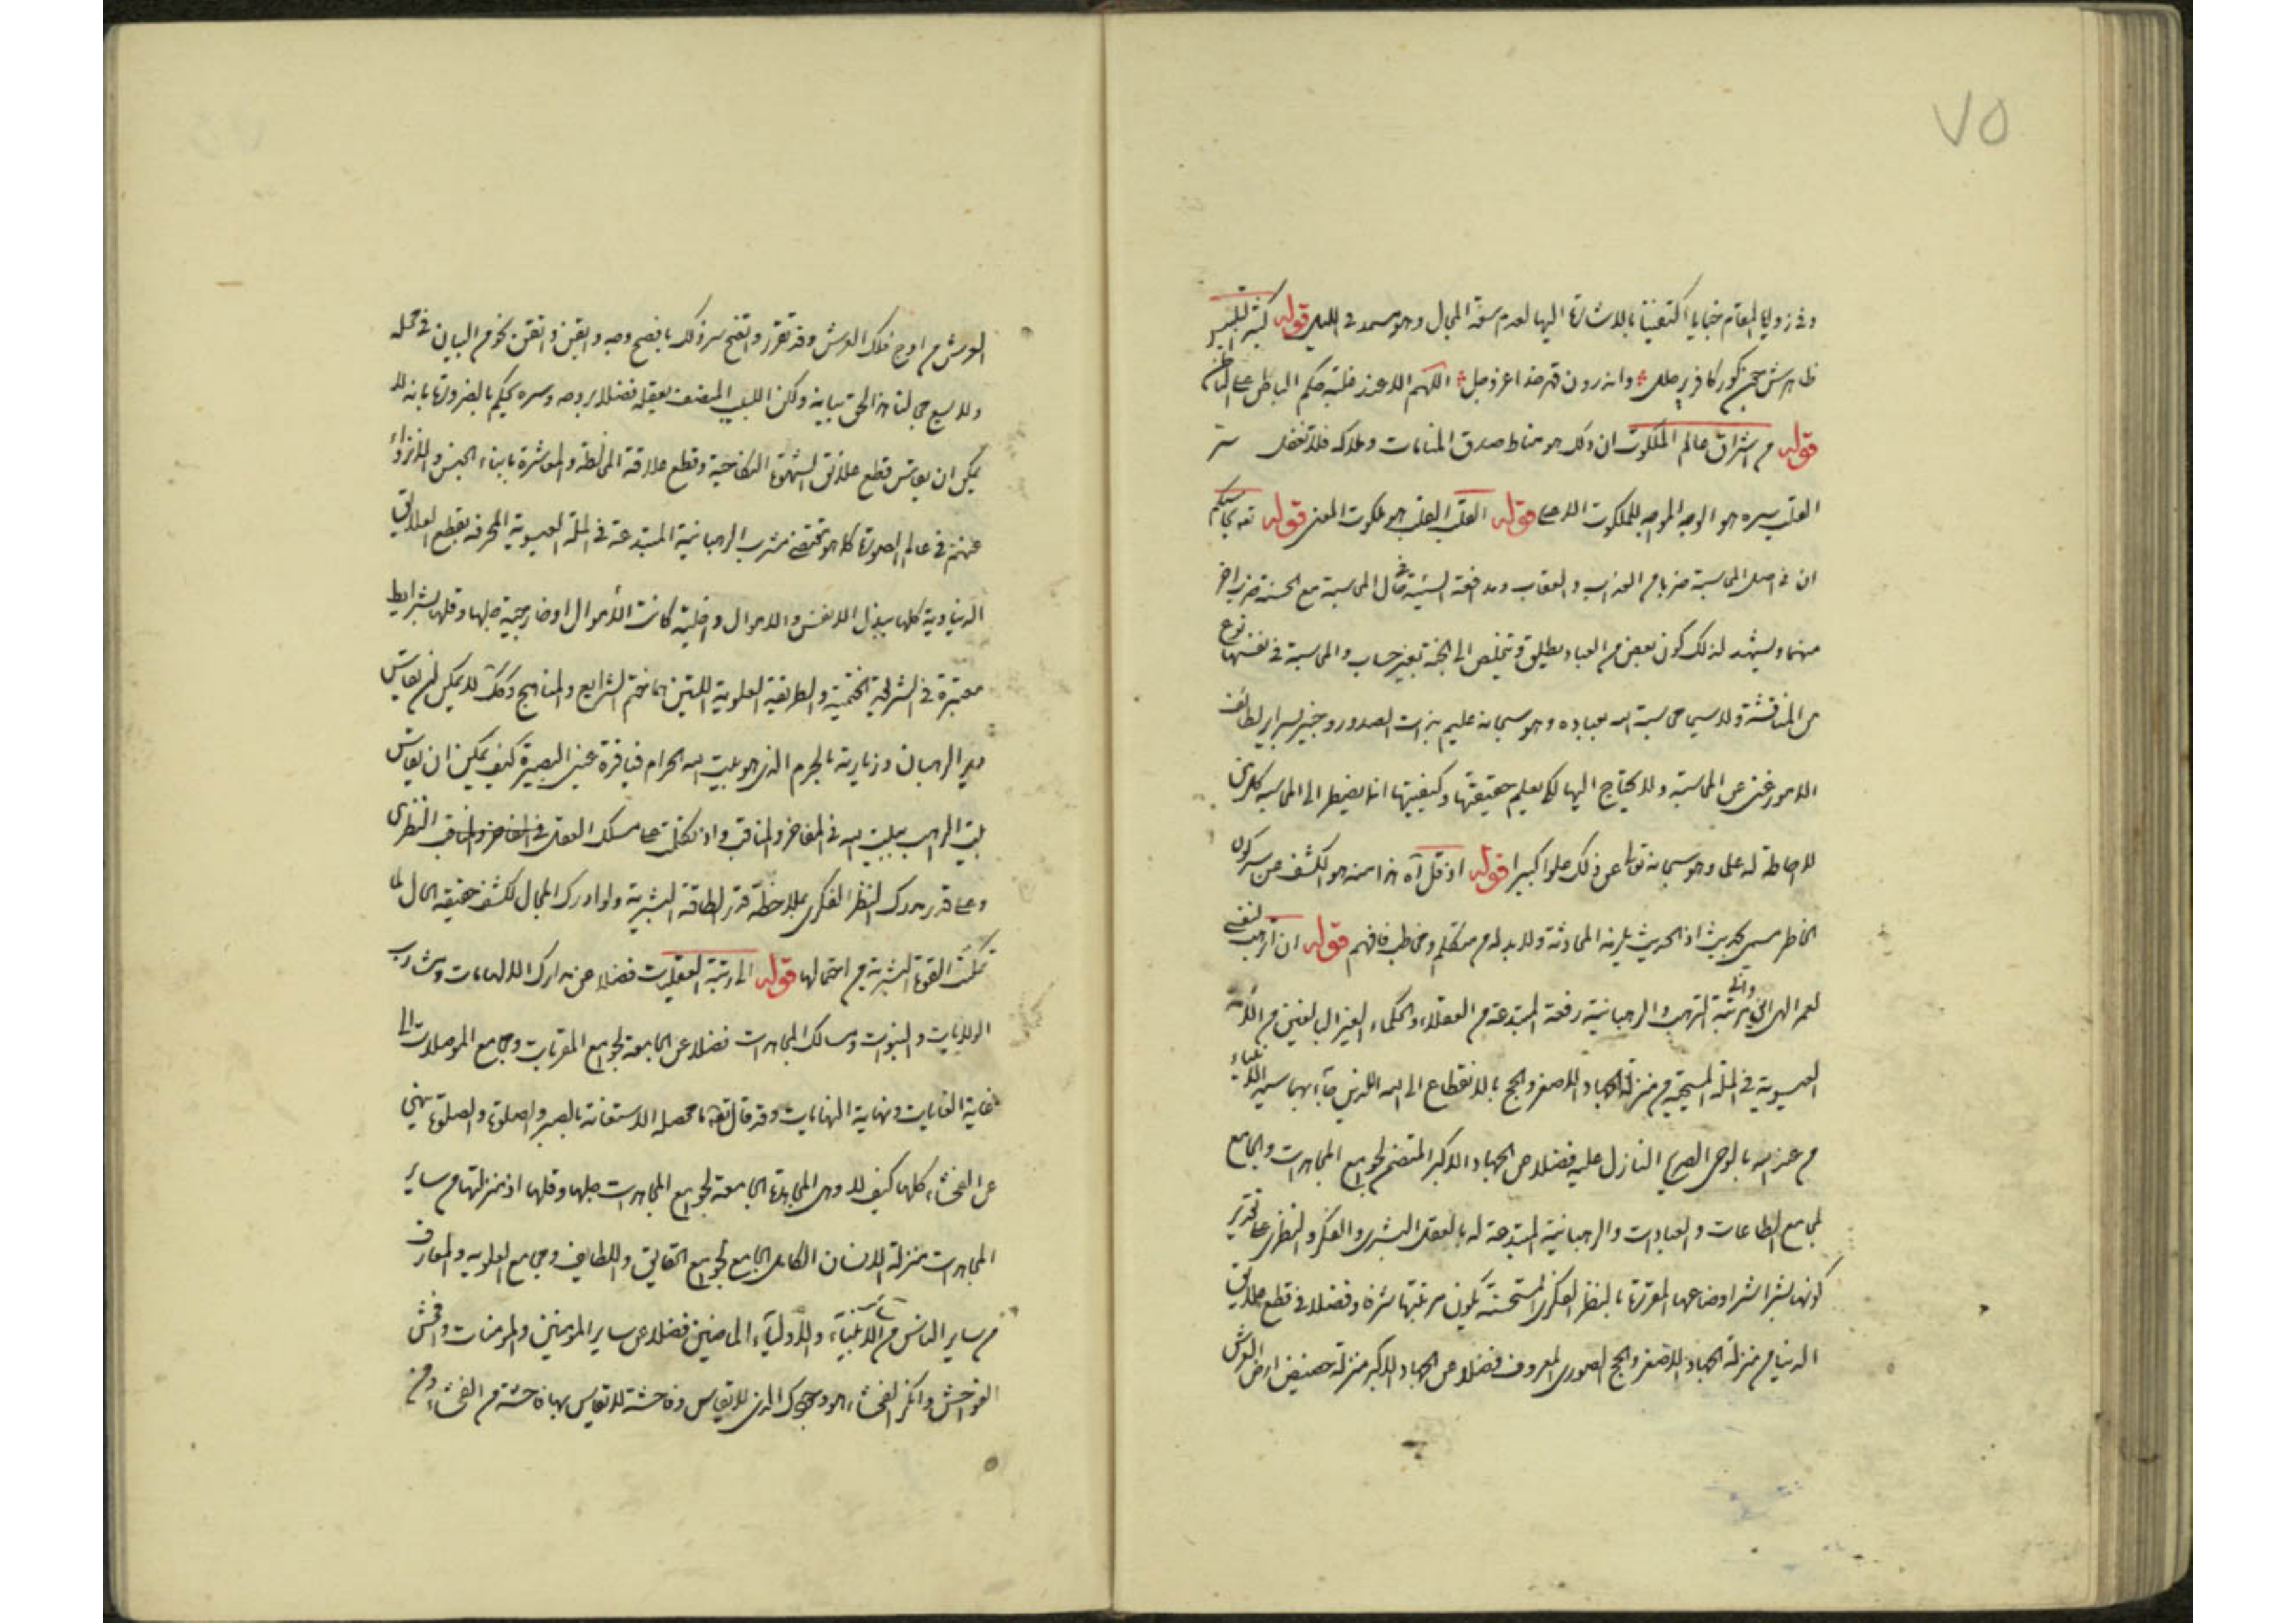 ٧٥
وفي زوايا المقام خبايا اكتفينا بالاشارة اليها لعدم سعة المجال وهو سمد في الليل قوله كثير التلبس
ظاهرش چون گور كافر پر حلل واندرون قهر خدا عز وجل اللهم الا عند غلبة حكم الباطن على الظاهر
قوله من اشراق عالم الملكوت ان ذلك هو مناط صدق المنامات وملاكه فلا تغفل
القلب سره هو الوجه الموجه للملكوت الاعلى قوله القلب القلب هو ملكوت المعنى قوله
ان في اصل المحاسبة ضربا من العذاب والعقاب ومدافعة السيئة في حال المحاسبة مع الحسنة ضرب اخر
منهما ويشهد لذلك كون بعض من العباد يطلق ويتخلص الى الجنة بغير حساب والمحاسبة في نفسها نوع
من المناقشة ولا سيما محاسبة الله بعباده وهو سبحانه عليم بذات الصدور وخبير بسراير لطائف
الامور غنى عن المحاسبة ولا يحتاج اليها لكي يعلم حقيقتها وكيفيتها انما يضطر الى المحاسبة كل من
لا احاطة له على وهو سبحانه تعالى عن ذلك علوا كبيرا قوله اذ قل آه هذا منه هو الكشف عن سر كون
الخاطر يسمى بحديث اذ الحديث يلزمه المحادثة ولا بد له من متكلم ومخاطب فافهم قوله ان اترهب لنفسي
لعمر الهى اين مرتبة الترهب والرهبانية رفعة المبتدعة من العقلاء والحكماء الغير البالغين من الامة
العيسوية في الملة المسيحية من منزلة الجهاد الاصغر والحج بالانقطاع الى الله اللذين جاء بهما سيد الانبياء
من عند الله بالوحى الصريح النازل عليه فضلا عن الجهاد الاكبر المتضمن لجوامع المجاهدات والجامع
لمجامع الطاعات والعبادات والرهبانية المبتدعة له بالعقل البشرى والفكر والنظرى على تقدير
كونها بشراشر اوضاعها المقررة بالنظر الفكرى المستحسنة يكون مرتبتها شرفا وفضلا في قطع علايق
الدنيا من منزلة الجهاد الاصغر والحج الصورى المعروف فضلا عن الجهاد الاكبر منزلة حضيض ارض الفرش
العرش من اوج فلك العرش وقد تقرر واتضح سر ذلك بافصح وجه وايقن واتقن نحو من البيان في محله
ولا يسع مجالنا هذا الحق تبيانه ولكن اللبيب المنصف بعقله فضلا بروحه وسره يحكم بالضرورة بانه لا
يمكن ان يقاس قطع علائق الشهوة النكاحية وقطع علاقة المخالطة والمعاشرة بابناء الجنس والانزواء
عنهم في عالم الصورة كما هو مقتضى مشرب الرهبانية المبتدعة في الملة العيسوية المحرفة بقطع العلايق
الدنياوية كلها ببذل الانفس والاموال داخلية كانت الاموال او خارجية جلها وقلها بشرايط
معتبرة في الشريعة الختمية والطريقة العلوية اللتين هما ختم الشرايع والمناهج وكذلك لا يمكن ان يقاس
دير الرهبان وزيارته بالحرم الذى هو بيت الله الحرام فياقرة عين البصيرة كيف يمكن ان يقاس
بيت الراهب ببيت الله في المفاخر والمناقب واذ نقلت على مسلك العقل في المفاخر والمناقب النظرى
وعلى قدر يدرك النظر الفكرى بملاحظة قدر الطاقة البشرية ولو ادرك المجال لكشف حقيقة الحال لما
تمكنت القوة البشرية من احتمالها قوله الى رتبة العقليات فضلا عن مدارك الالهامات ومشارب
الولايات والنبوات ومسالك المجاهدات فضلا عن الجامعة لجوامع المقربات ومجامع الموصلات الى
غاية الغايات ونهاية النهايات وقد قال تعالى ما محصله الاستعانة بالصبر والصلوة والصلوة تنهى
عن الفحشاء كلها كيف لا وهى المجاهدة الجامعة لجوامع المجاهدات جلها وقلها اذ منزلتها من ساير
المجاهدات بمنزلة الانسان الكامل الجامع لجوامع الحقايق واللطايف ومجامع العلوم والمعارف
من ساير الناس من الانبياء والاولياء الماضين فضلا عن ساير المؤمنين والمؤمنات وافحش
الفواحش وانكر الفحشاء هو وجودك الذى لا يقاس وفاحشة لا تقاس بها فاحشة من الفحشاء ومن